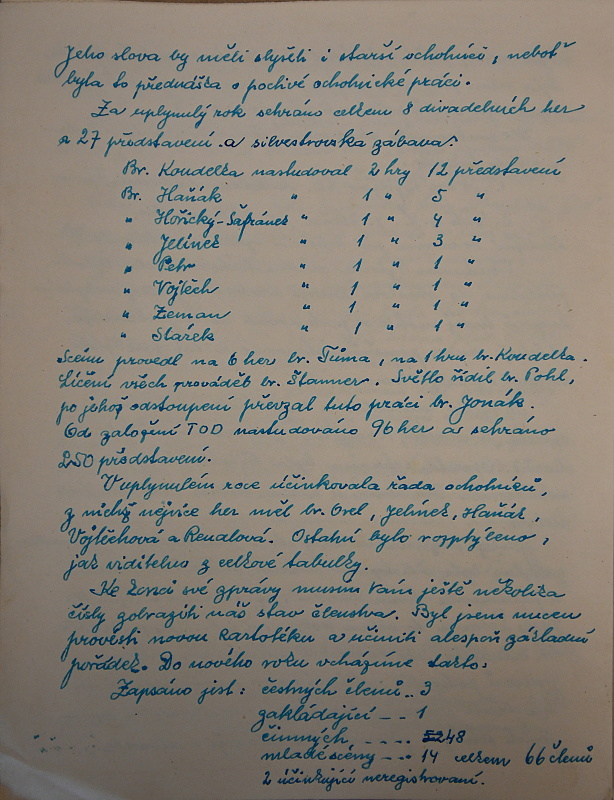 Jeho slova by měli slyšeti i starší ochotníci, neboť
byla to přednáška o poctivé ochotnické práci.
Za uplynulý rok sehráno celkem 8 divadelních her
a 27 představení a silvestrovská zábava:
Br. Koudelka nastudoval 2 hry 12 představení
Br. Haňák " 1 " 5 "
" Hořický-Šafránek " 1 " 4 "
" Jelínek " 1 " 3 "
" Petr " 1 " 1 "
" Vojtěch " 1 " 1 "
" Zeman " 1 " 1 "
" Stárek " 1 " 1 "
Scénu provedl na 6 her br. Tůma, na 1 hru br. Koudelka.
Líčení všech prováděl br. Štanner. Světlo řídil br. Pohl,
po jehož odstoupení převzal tuto práci br. Jonák.
Od založení TOD nastudováno 96 her a sehráno
250 představení.
V uplynulém roce účinkovala řada ochotníků,
z nichž nejvíce her měl br. Orel, Jelínek, Haňák,
Vojtěchová a Reualová. Ostatní bylo rozptýleno,
jak viditelno z celkové tabulky.
Ke konci své zprávy musím Vám ještě několika
čísly zobraziti náš stav členstva. Byl jsem nucen
provésti novou kartotéku a učiniti alespoň základní
pořádek. Do nového roku vcházíme takto:
Zapsáno jest: čestných členů .. 3
zakládající - - 1
činných - . . . 48
mladé scény - - .. 14 celkem 66 členů
2 účinkující neregistrovaní.